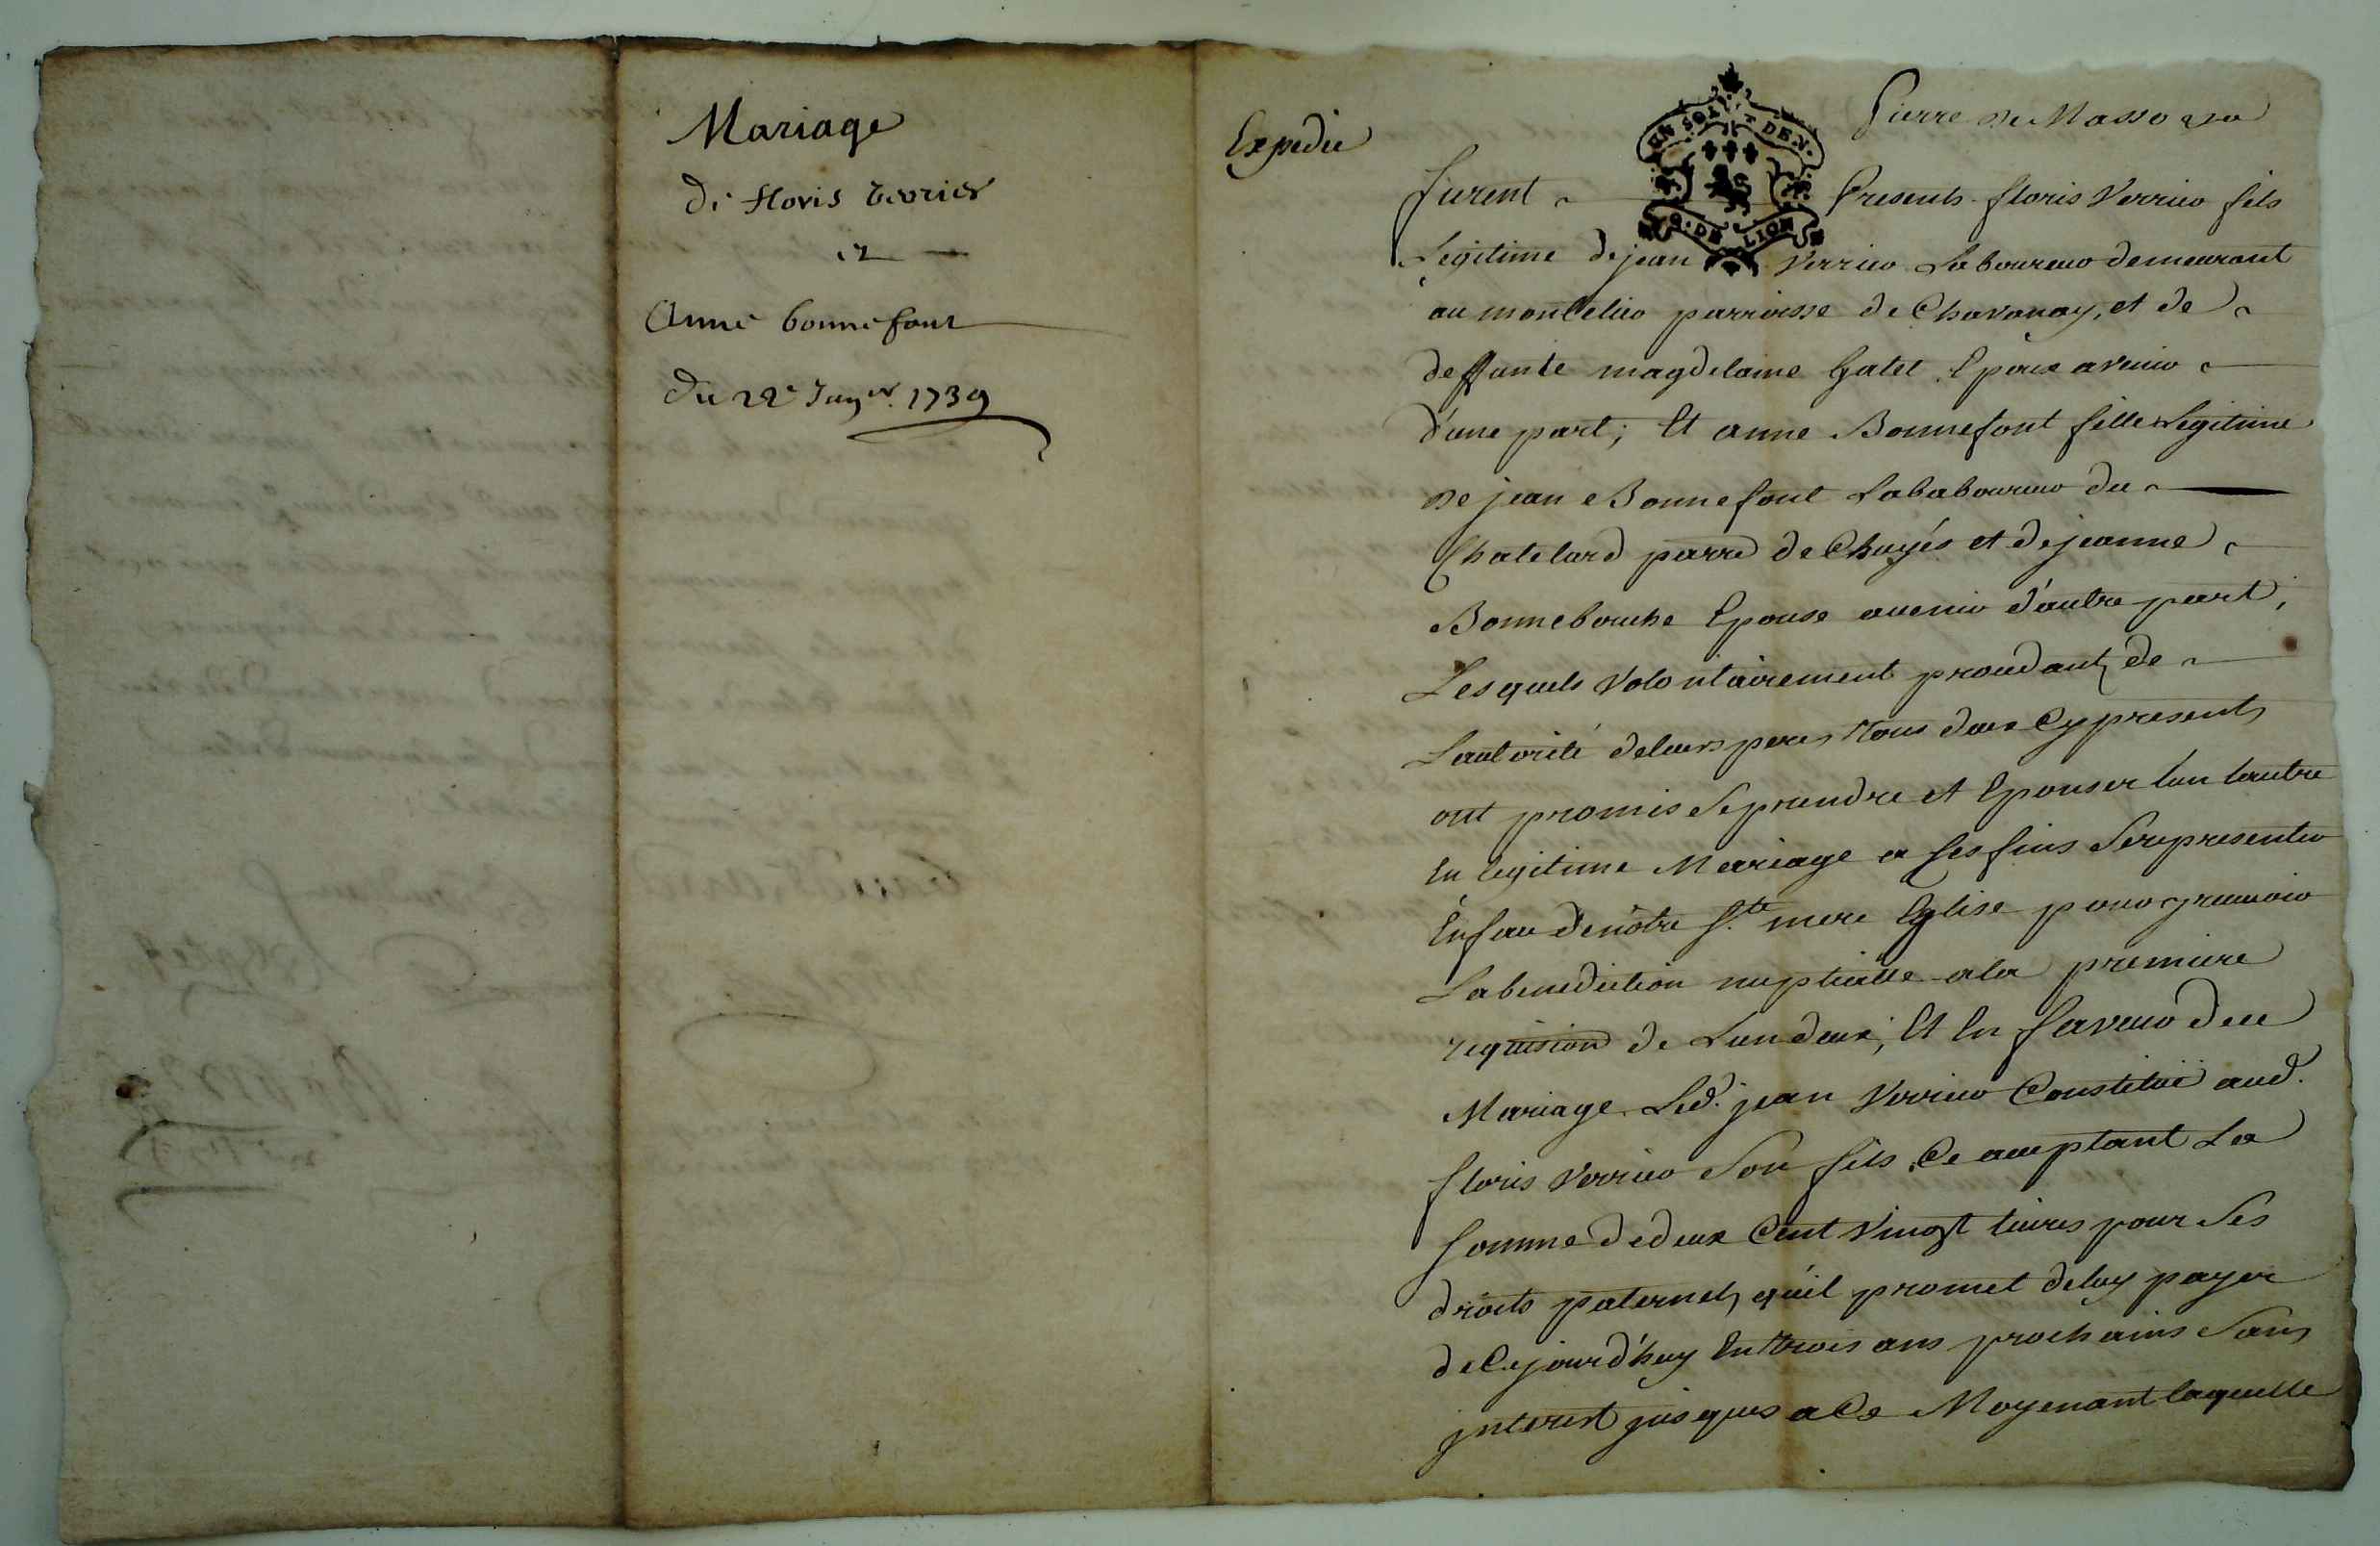 Mariage
De floris verrier
et
Anne bonnefont
Du 22e Janer. 1739
Expedie
Pierre de Masso
UN SOL DEN.
G. DE LION
furent Presents floris Verrier fils
Legitime de jean Verrier Laboureur demeurant
au montelier parroisse de Chavanay, et de
deffunte magdelaine Gatet Epoux avenir
d'une part; Et anne Bonnefont fille Legitime
de jean Bonnefont Lababoureur du
Chatelard parre de Chuyés et de jeanne
Bonnebouche Epouse avenir d'autre part;
Lesquels volontairement procedants de
Lautorité de leurs peres tous deux Cy presents
ont promis se prendre et Epouser l'un lautre
En legitime Mariage a ses fins se representer
En face de nôtre Ste mere Eglise pour y recevoir
La benediction nuptialle a la premiere
requision de Lun deux; Et En faveur du
Mariage Led. jean Verrier Constitüe aud.
floris Verrier Son fils Ce acceptant La
somme de deux Cent Vingt livres pour Ses
droits paternels qu'il promet de luy payer
de Cejourd'huy En trois ans prochains Sans
jnterest jusques a Ce Moyenant laquelle